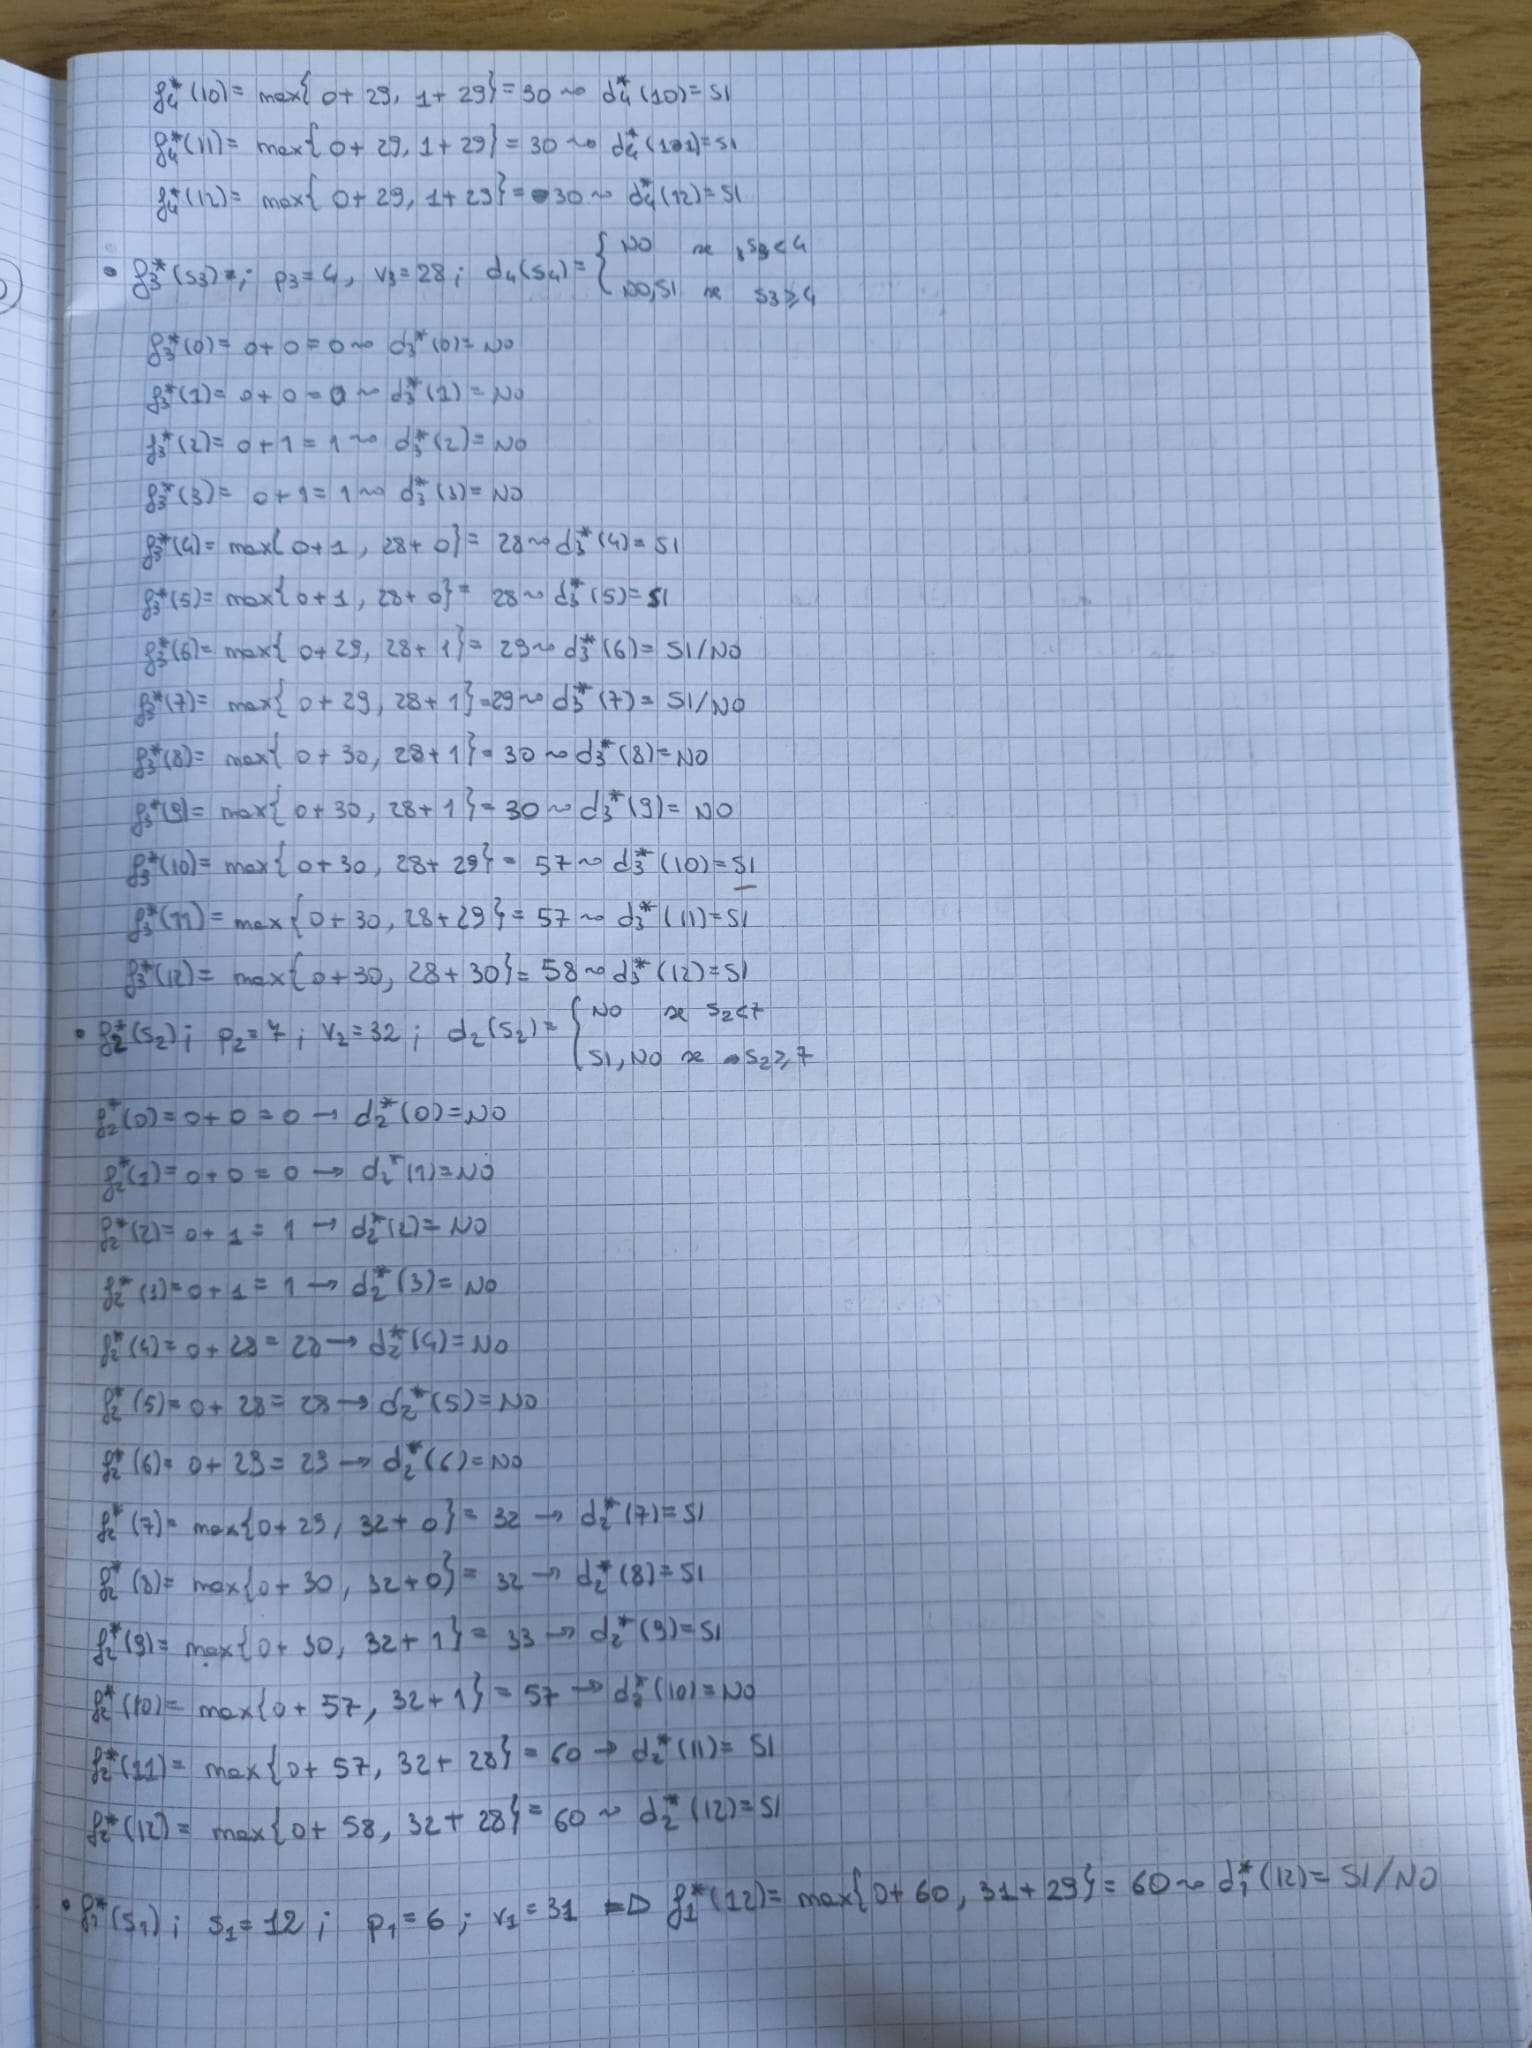 f₄*(10)= max{ 0+29, 1+29}=30 ~> d₄*(10)=SI
f₄*(11)= max{ 0+29, 1+29}=30 ~> d₄*(11)=SI
f₄*(12)= max{ 0+29, 1+29}=30 ~> d₄*(12)=SI
• f₃*(s₃); p₃=4, v₃=28; d₄(s₄)= { NO se s₃<4
NO,SI se s₃≥4
f₃*(0)= 0+0=0 ~> d₃*(0)=NO
f₃*(1)= 0+0=0 ~> d₃*(1)=NO
f₃*(2)= 0+1=1 ~> d₃*(2)=NO
f₃*(3)= 0+1=1 ~> d₃*(3)=NO
f₃*(4)= max{ 0+1, 28+0}= 28 ~> d₃*(4)=SI
f₃*(5)= max{ 0+1, 28+0}= 28 ~> d₃*(5)=SI
f₃*(6)= max{ 0+29, 28+1}= 29 ~> d₃*(6)= SI/NO
f₃*(7)= max{ 0+29, 28+1}=29 ~> d₃*(7)= SI/NO
f₃*(8)= max{ 0+30, 28+1}=30 ~> d₃*(8)=NO
f₃*(9)= max{ 0+30, 28+1}=30 ~> d₃*(9)=NO
f₃*(10)= max{ 0+30, 28+29}= 57 ~> d₃*(10)=SI
f₃*(11)= max{ 0+30, 28+29}=57 ~> d₃*(11)=SI
f₃*(12)= max{ 0+30, 28+30}=58 ~> d₃*(12)=SI
• f₂*(s₂); p₂=7; v₂=32; d₂(s₂)= { NO se s₂<7
SI,NO se s₂≥7
f₂*(0)=0+0=0 → d₂*(0)=NO
f₂*(1)=0+0=0 → d₂*(1)=NO
f₂*(2)=0+1=1 → d₂*(2)=NO
f₂*(3)=0+1=1 → d₂*(3)=NO
f₂*(4)=0+28=28 → d₂*(4)=NO
f₂*(5)=0+28=28 → d₂*(5)=NO
f₂*(6)=0+29=29 → d₂*(6)=NO
f₂*(7)= max{0+29, 32+0}= 32 → d₂*(7)=SI
f₂*(8)= max{0+30, 32+0}= 32 → d₂*(8)=SI
f₂*(9)= max{0+30, 32+1}= 33 → d₂*(9)=SI
f₂*(10)= max{0+57, 32+1}=57 → d₂*(10)=NO
f₂*(11)= max{0+57, 32+28}=60 → d₂*(11)= SI
f₂*(12)= max{0+58, 32+28}=60 ~> d₂*(12)=SI
• f₁*(s₁); s₁=12; p₁=6; v₁=31 => f₁*(12)= max{0+60, 31+29}=60 ~> d₁*(12)= SI/NO